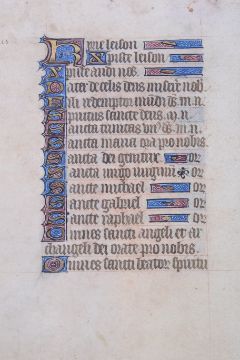 Kyrieleison
Xpisteleison
Xpiste audi nos.
Pater de celis deus miserere nob
Fili redemptor mundi ds m. n.
Spiritus sancte deus. m. n.
Sancta trinitas unus ds. m. n.
Sancta maria ora pro nobis.
Sancta dei genitrix or
Sancta virgo virginum or
Sancte michael or
Sancte gabriel or
Sancte raphael or
Omnes sancti angeli et ar
changeli dei orate pro nobis.
Omnes sancti beatorum spirituū